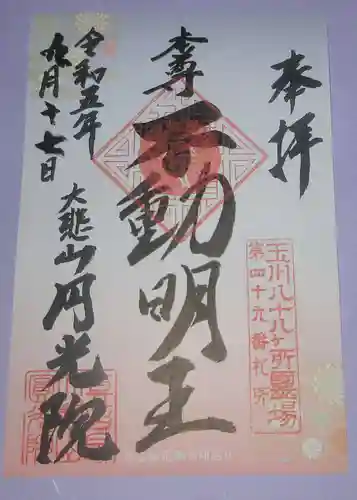 奉拝
玉川八十八ヶ所霊場
第四十九番札所
本尊不動明王
令和五年
九月十七日
大悲山円光院